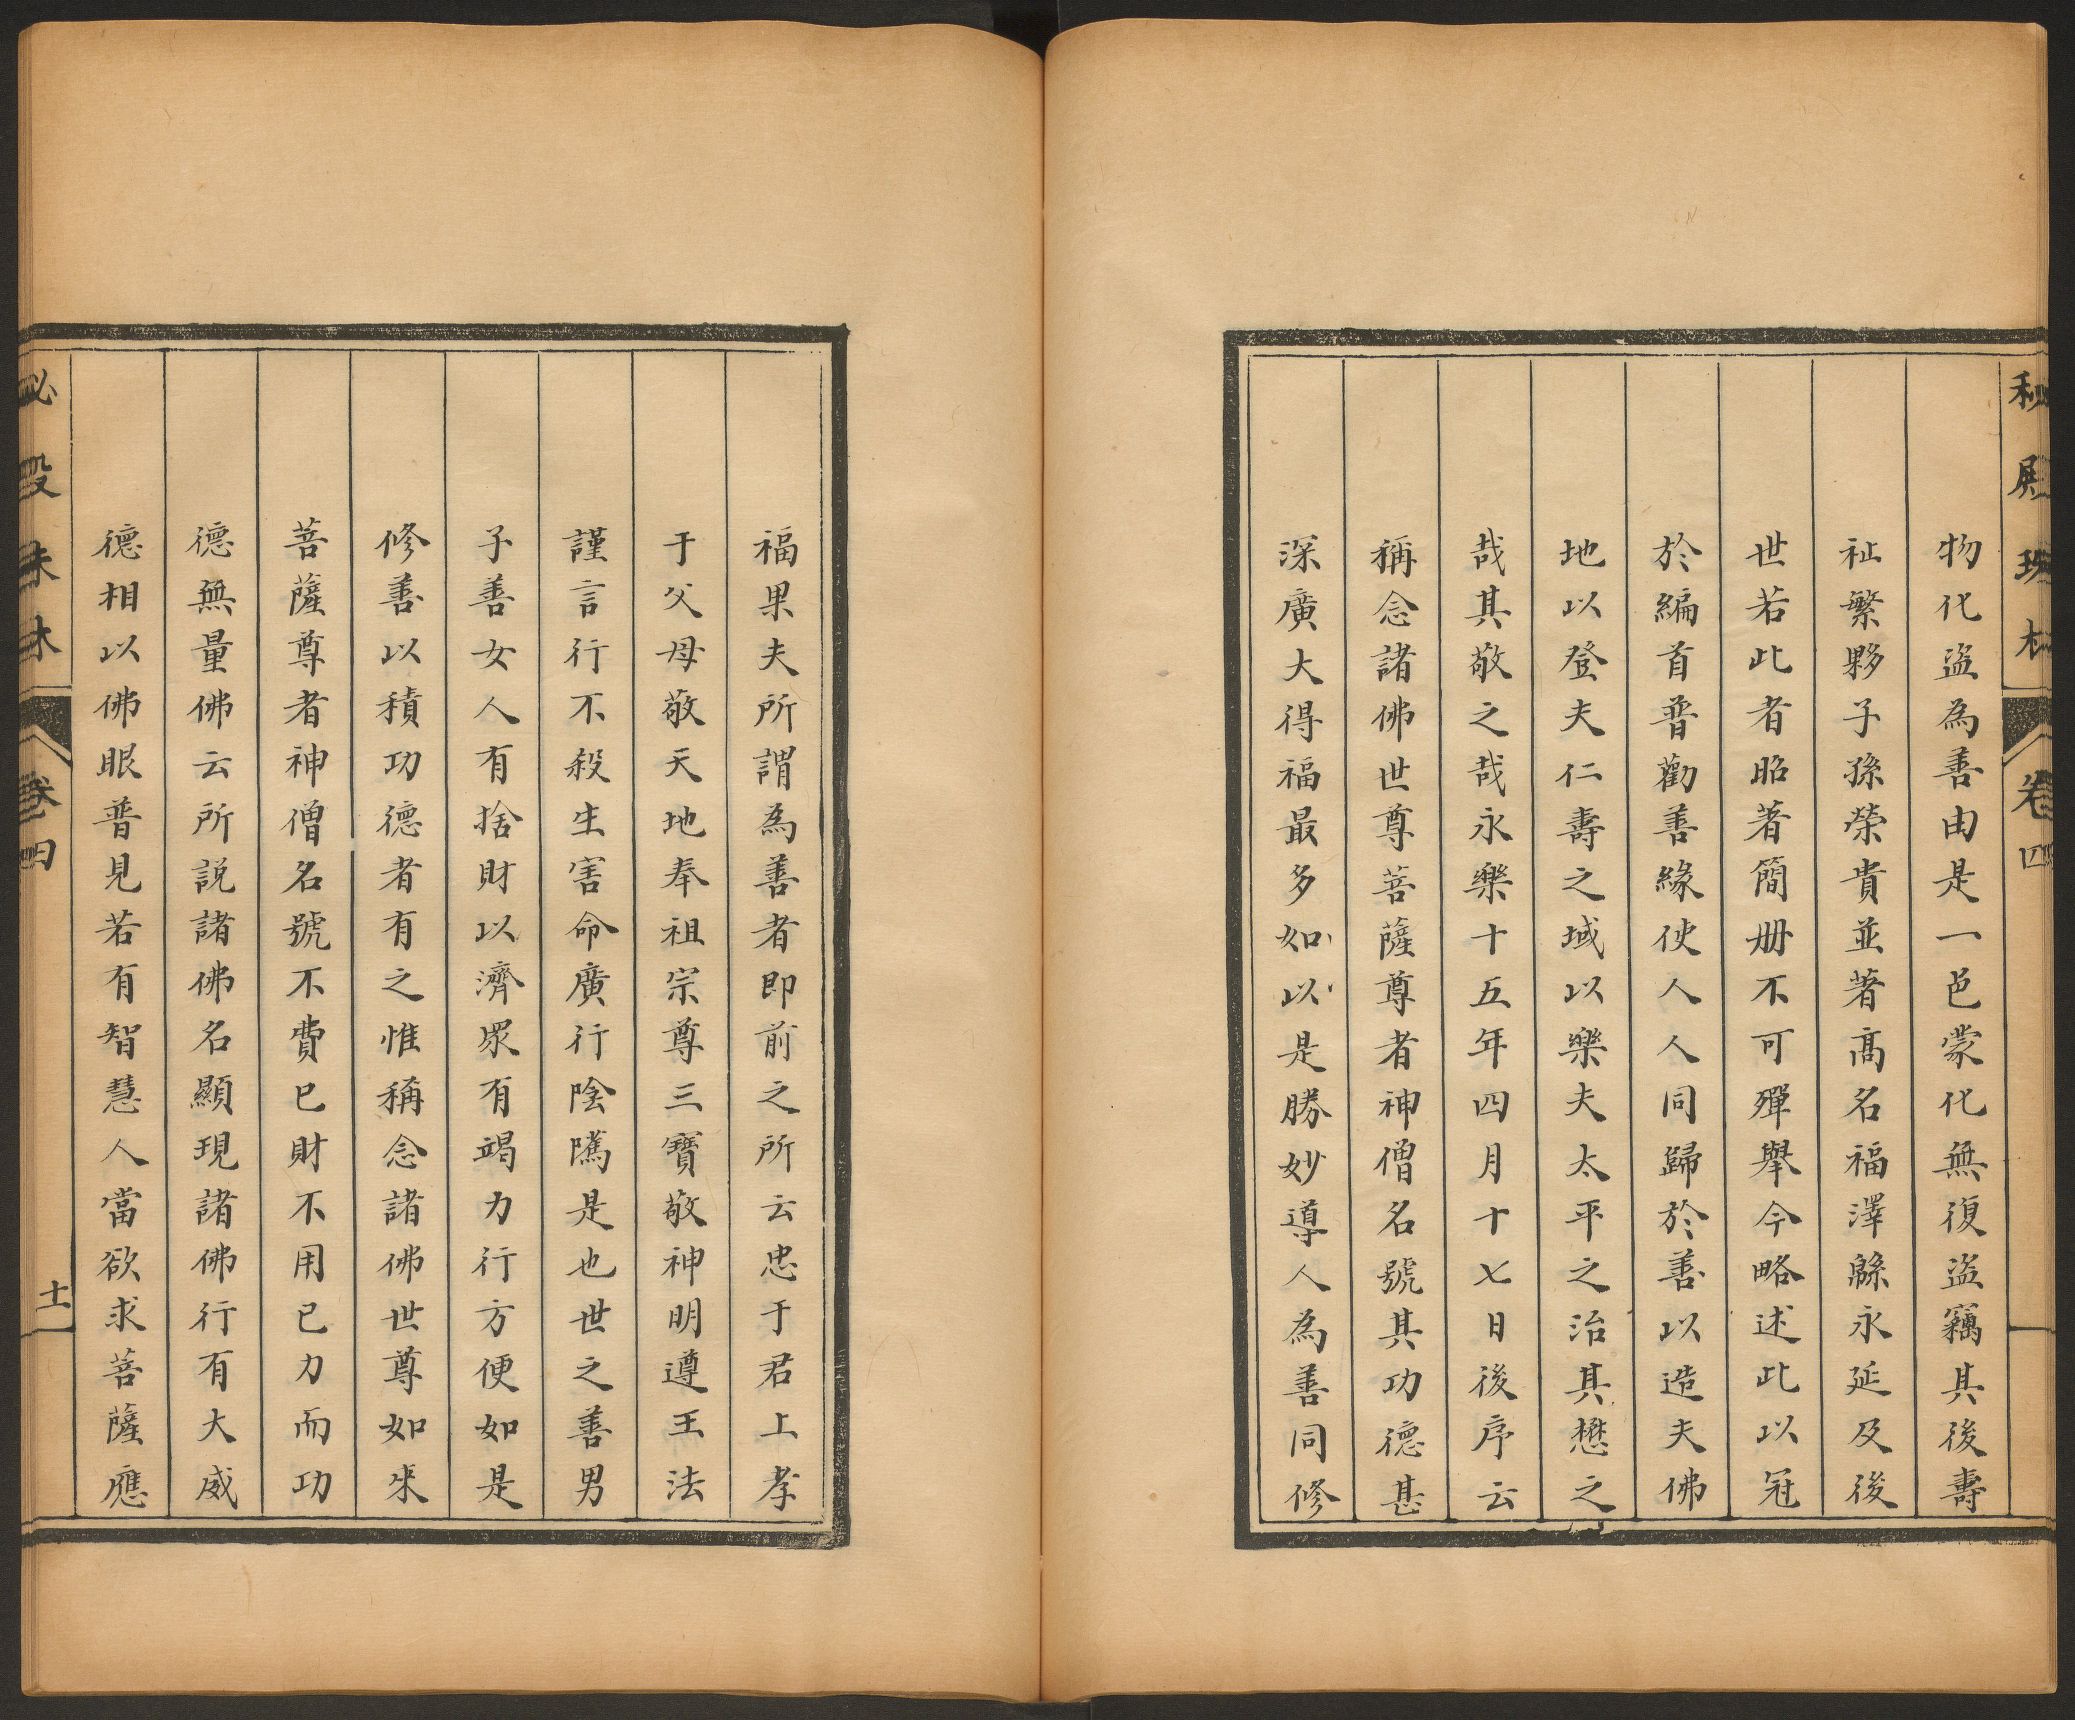 秘殿珠林
卷四
物化盜為善由是一邑蒙化無復盜竊其後壽
祉繁夥子孫榮貴並著高名福澤緜永延及後
世若此者昭著簡冊不可殫舉今略述此以冠
於編首普勸善緣使人人同歸於善以造夫佛
地以登夫仁壽之域以樂夫太平之治其懋之
哉其敬之哉永樂十五年四月十七日後序云
稱念諸佛世尊菩薩尊者神僧名號其功德甚
深廣大得福最多如以是勝妙導人為善同修
福果夫所謂為善者即前之所云忠于君上孝
于父母敬天地奉祖宗尊三寶敬神明遵王法
謹言行不殺生害命廣行陰隲是也世之善男
子善女人有捨財以濟眾有竭力行方便如是
修善以積功德者有之惟稱念諸佛世尊如來
菩薩尊者神僧名號不費己財不用己力而功
德無量佛云所説諸佛名顯現諸佛行有大威
德相以佛眼普見若有智慧人當欲求菩薩應
秘殿珠林
卷四
十一